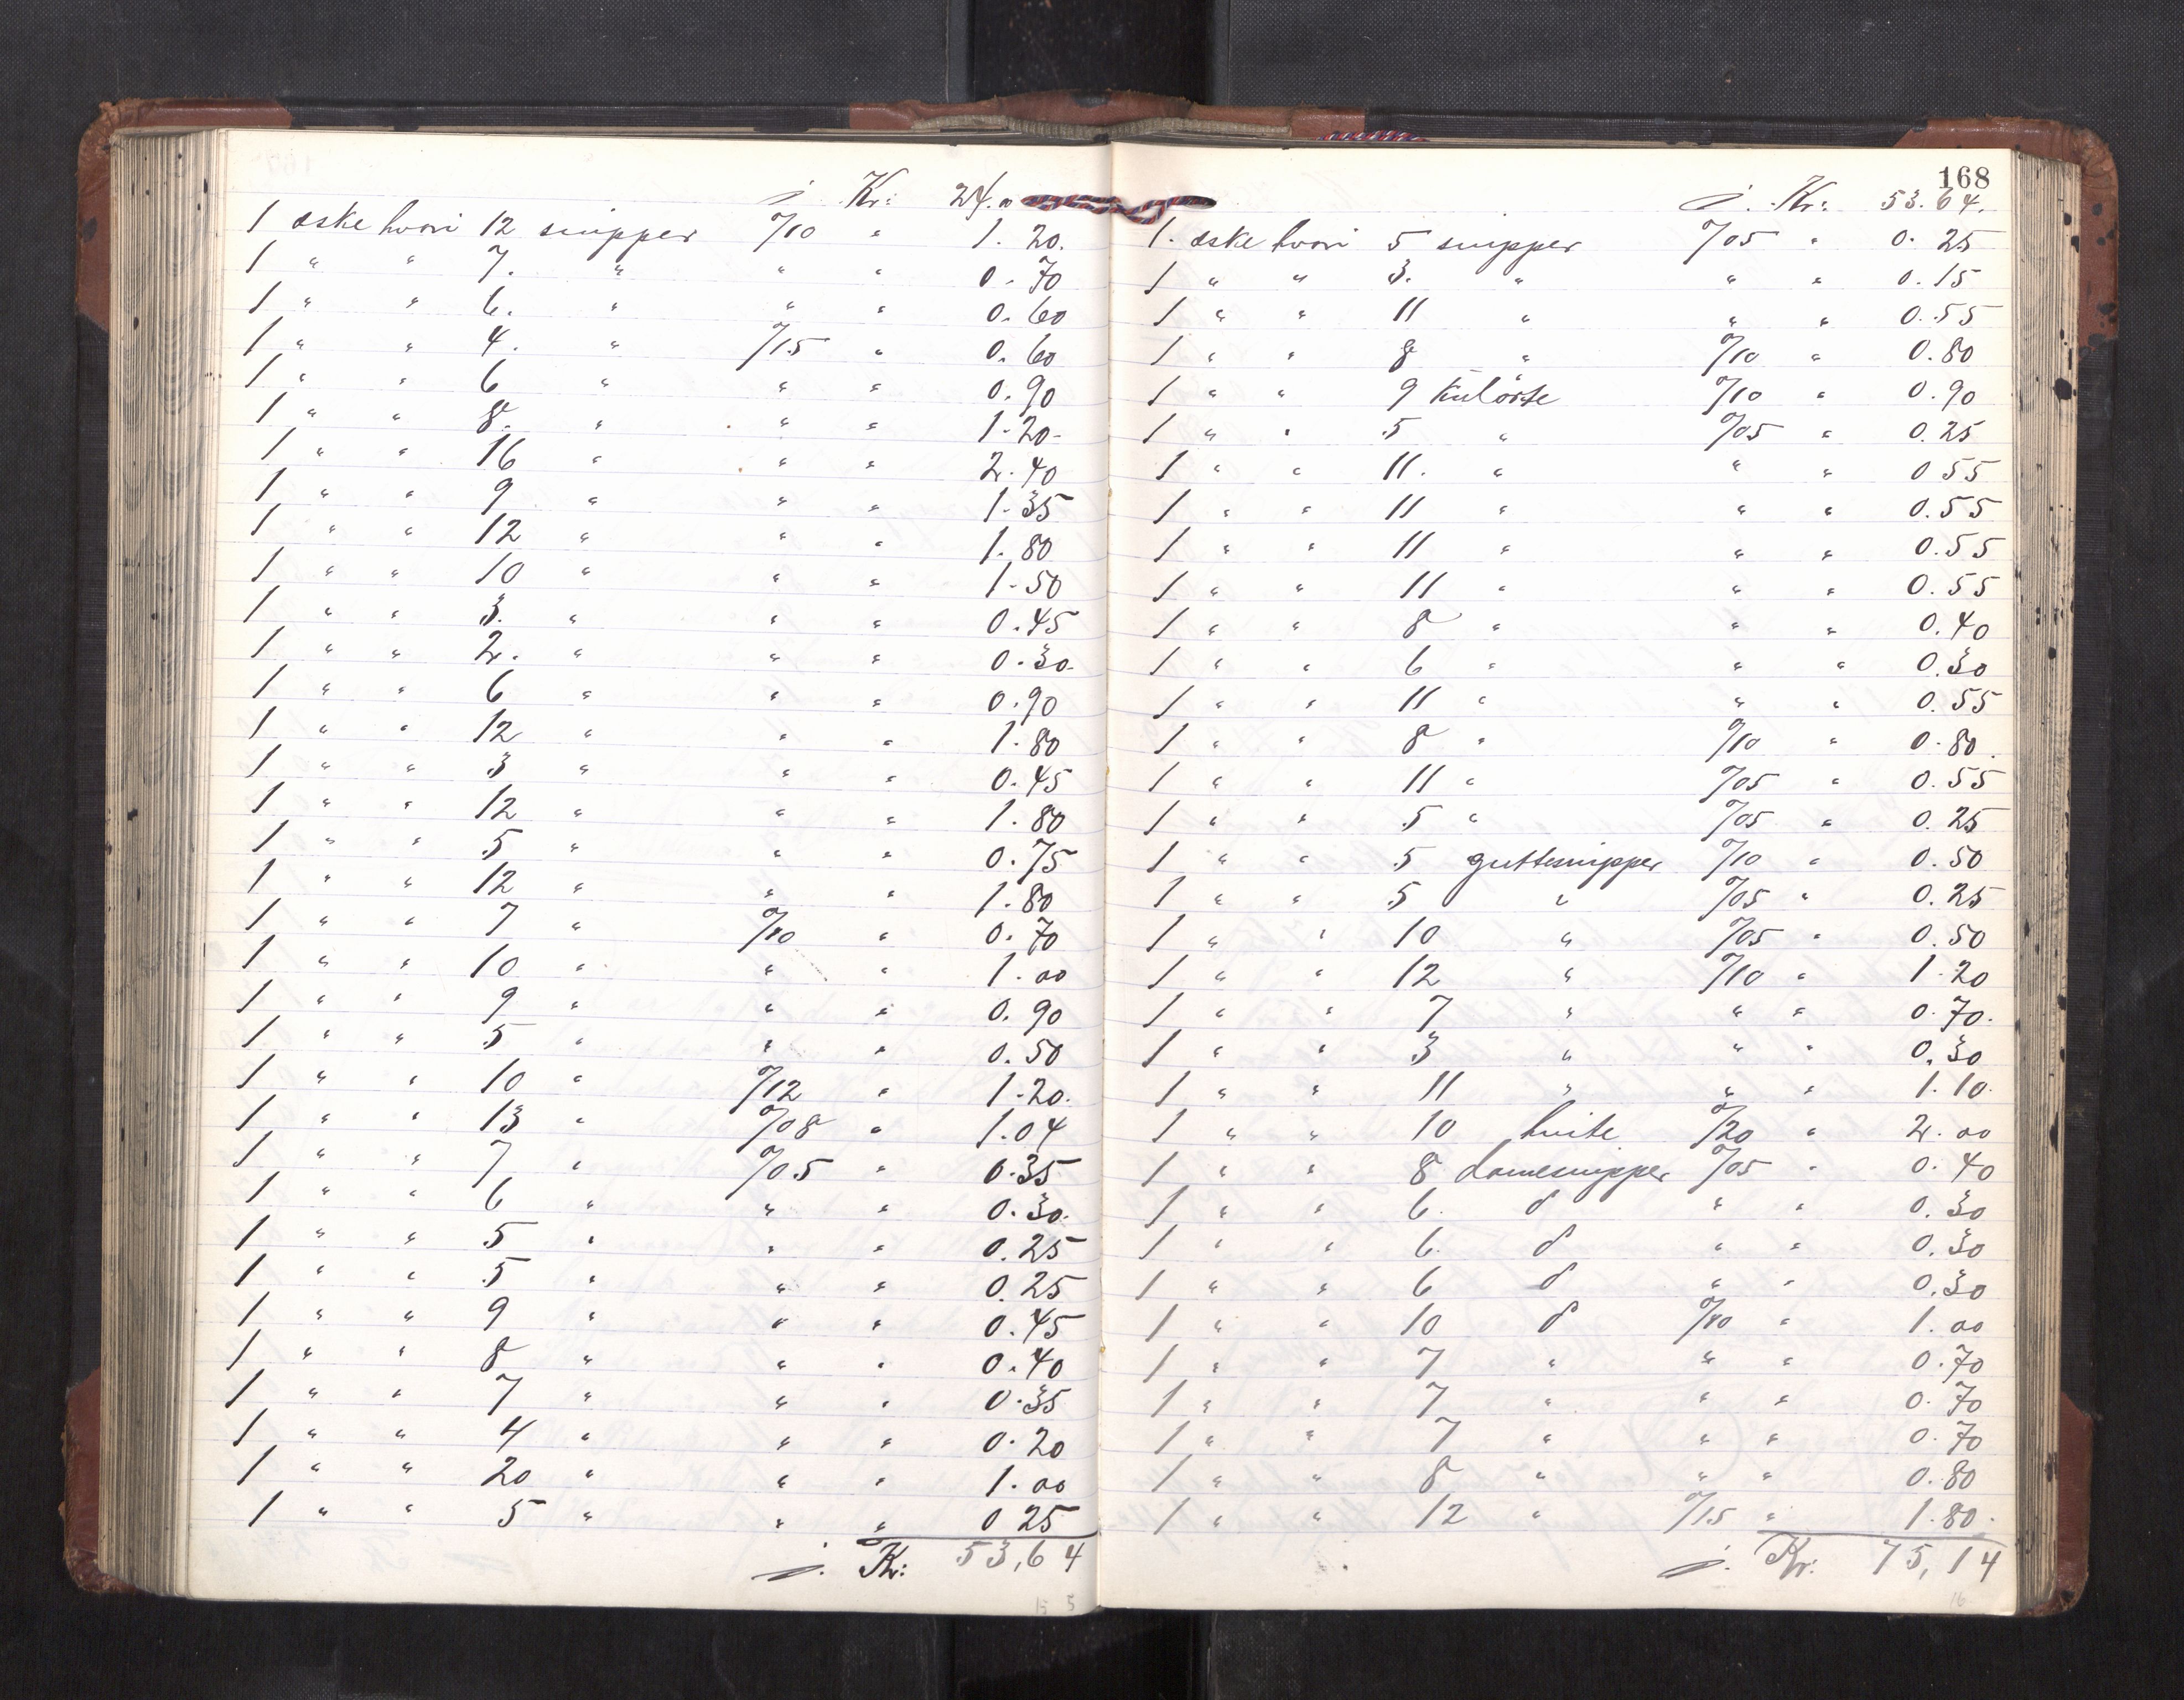 j. Kr: 24.00
1 æske hvori 12 snipper %10 " 1.20.
1 " " 7. " " " 0.70
1 " " 6. " " " 0.60
1 " " 4. " %15 " 0.60
1 " " 6 " " " 0.90
1 " " 8. " " " 1.20
1 " " 16 " " " 2.40
1 " " 9 " " " 1.35
1 " " 12 " " " 1.80
1 " " 10 " " " 1.50
1 " " 3. " " " 0.45
1 " " 2. " " " 0.30
1 " " 6 " " " 0.90
1 " " 12 " " " 1.80
1 " " 3 " " " 0.45
1 " " 12 " " " 1.80
1 " " 5 " " " 0.75
1 " " 12 " " " 1.80
1 " " 7 " %10 " 0.70
1 " " 10 " " " 1.00
1 " " 9 " " " 0.90
1 " " 5 " " " 0.50
1 " " 10 " %12 " 1.20.
1 " " 13 " %08 " 1.04
1 " " 7 " %05 " 0.35
1 " " 6 " " " 0.30.
1 " " 5 " " " 0.25
1 " " 5 " " " 0.25
1 " " 9 " " " 0.45
1 " " 8 " " " 0.40
1 " " 7 " " " 0.35
1 " " 4 " " " 0.20
1 " " 20 " " " 1.00
1 " " 5 " " " 0 25
j. Kr: 53,64
168
j. Kr: 53.64.
1. æske hvori 5 snipper %05 " 0.25
1 " " 3. " " " 0.15
1 " " 11 " " " 0.55
1 " " 8 " %10 " 0.80
1 " " 9 kulörte %10 " 0.90
1 " " 5 " %05 " 0.25
1 " " 11. " " " 0 55
1 " " 11 " " " 0.55
1 " " 11 " " " 0.55
1 " " 11 " " " 0.55
1 " " 8 " " " 0.40
1 " " 6 " " " 0.30
1 " " 11 " " " 0.55
1 " " 8 " %10 " 0.80.
1 " " 11 " %05 " 0.55
1 " " 5 " %05 " 0.25
1 " " 5 guttesnipper %10 " 0.50
1 " " 5 " %05 " 0.25
1 " " 10 " %05 " 0.50
1 " " 12 " %10 " 1.20
1 " " 7 " " " 0.70.
1 " " 3 " " " 0.30
1 " " 11 " " " 1.10.
1 " " 10 hvite %20 " 2.00
1 " " 8 damesnipper %05 " 0.40
1 " " 6. d " " 0.30
1 " " 6. d " " 0.30
1 " " 6 d " " 0.30
1 " " 10 d %10 " 1.00
1 " " 7 " " " 0.70
1 " " 7 " " " 0.70
1 " " 7 " " " 0.70
1 " " 8 " " " 0.80
1 " " 12 " %15 " 1.80.
j. Kr: 75,14